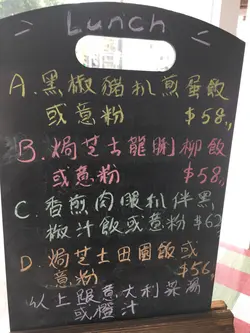 Lunch
A. 黑椒豬扒煎蛋飯
或意粉 $58.
B. 焗芝士龍脷柳飯
或意粉 $58.
C. 香煎肉眼扒伴黑
椒汁飯或意粉 $62
D. 焗芝士田園飯或
意粉 $56
以上跟意大利菜湯
或橙汁